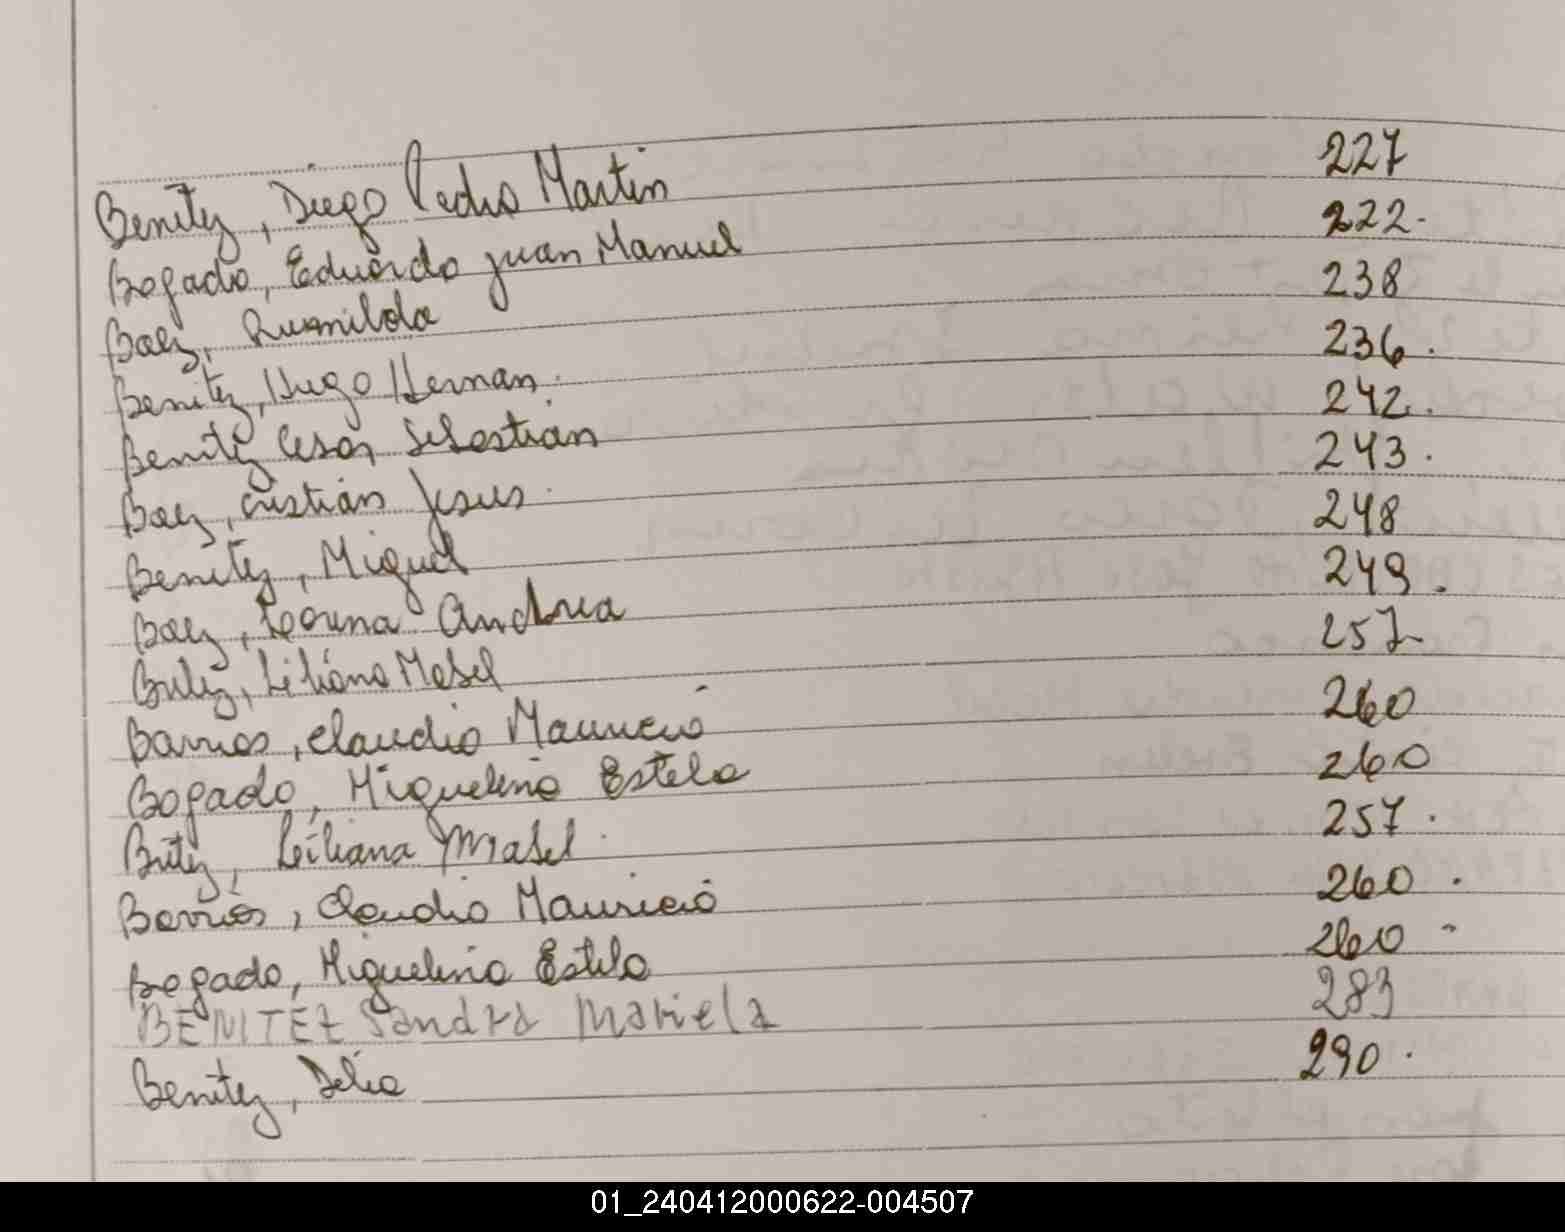 Benitez, Diego Pedro Martin 227
Bogado, Eduardo Juan Manuel 222.
Baez, Rumilda 238
Benitez, Hugo Hernan. 236.
Benitez Cesar Sebastian 242.
Baez, Cristian Jesus. 243.
Benitez, Miguel 248
Baez, Lorena Andrea 249.
Liliana Mabel 257
Barrios, Claudio Mauricio 260
Bogado, Miguelina Estela 260
Liliana Mabel. 257.
Barrios, Claudio Mauricio 260.
Bogado, Miguelina Estela 260 -
BENITEZ Sandra Mariela 283
Benitez, Delia 290.
01_240412000622-004507